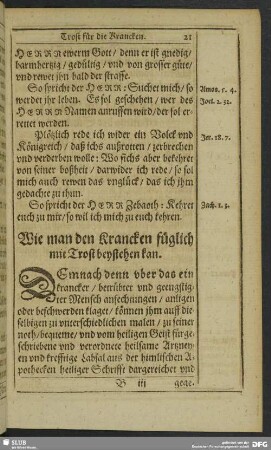 Trost für die Krancken. 21
HERRN ewerm Gott / denn er ist gnedig /
barmhertzig / gedültig / vnd von grosser güte /
vnd rewet jhn bald der straffe.
So spricht der HERR: Suchet mich / so
werdet jhr leben. Es sol geschehen / wer des
HERRN Namen anruffen wird / der sol er-
rettet werden.
Amos. 5. 4.
Joel. 2. 32.
Plötzlich rede ich wider ein Volck vnd
Königreich / daß ichs außrotten / zerbrechen
vnd verderben wolle: Wo sichs aber bekehret
von seiner boßheit / darwider ich rede / so sol
mich auch rewen das vnglück / das ich jhm
gedachte zu thun.
Jer. 18. 7.
So spricht der HERR Zebaoth: Kehret
euch zu mir / so wil ich mich zu euch kehren.
Zach. 1. 3.
Wie man den Krancken füglich
mit Trost beystehen kan.
DEmnach denn vber das ein
krancker / betrübter vnd geengstig-
ter Mensch anfechtungen / anligen
oder beschwerden klaget / können jhm auff die-
selbigen zu vnterschiedlichen malen / zu seiner
noth / bequeme / vnd vom heiligen Geist für ge-
schriebene vnd verordnete heilsame Artzney-
en vnd krefftige Labsal aus der himlischen A-
pothecken heiliger Schrifft dargereichet vnd
B iij
gege-
SLUB
DFG